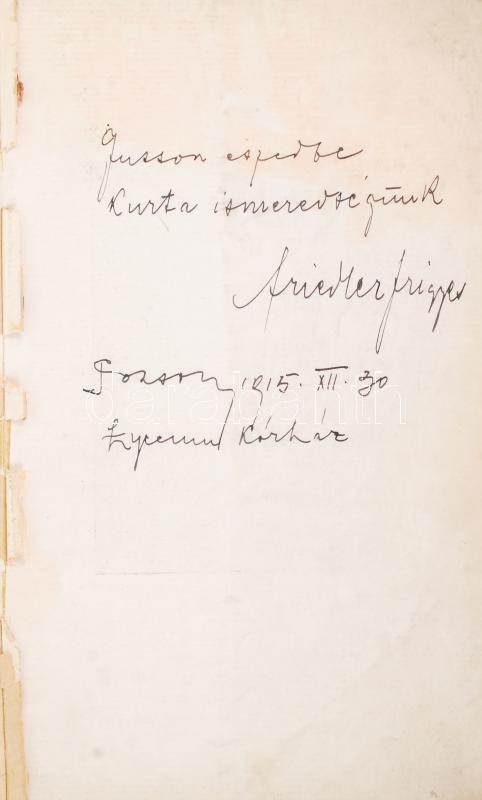 Jusson eszedbe
Kurta ismeredségünk
Friedler Frigyes
Pozsony 1915. XII. 30
Lyceum Kórház
darabanth